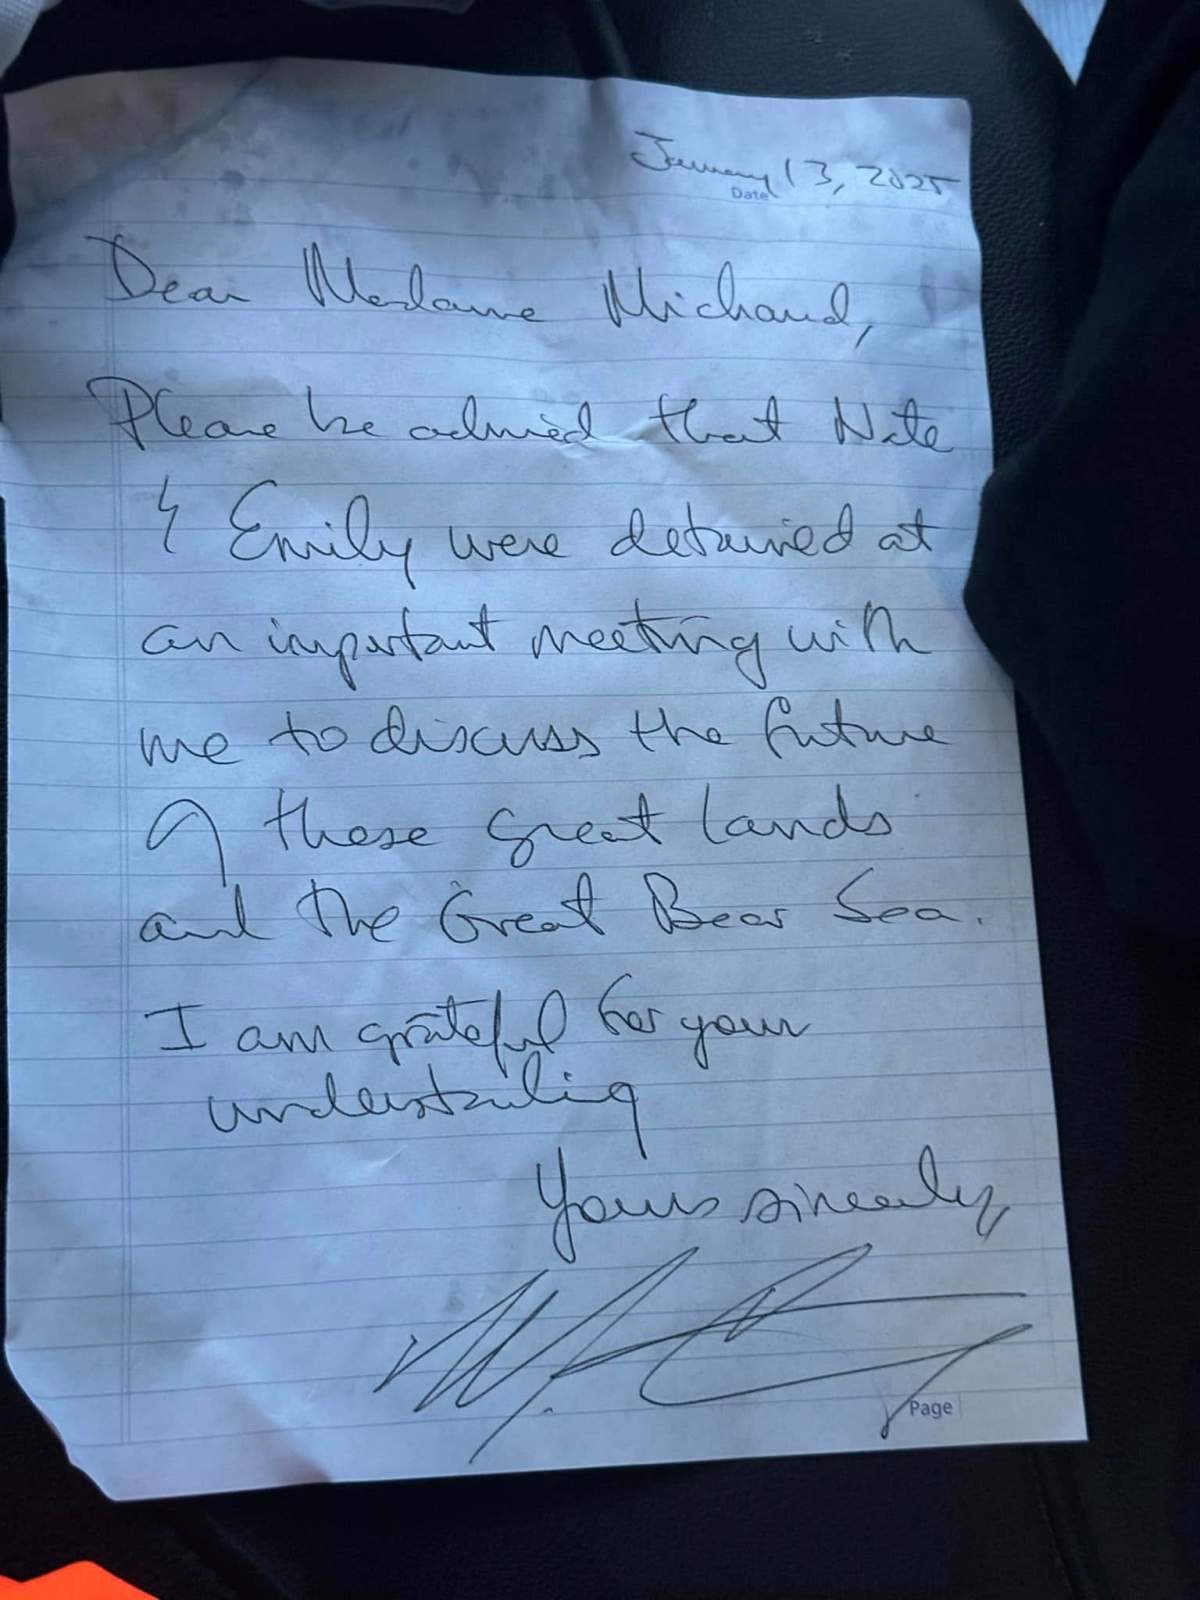 January 13, 2025
Date
Dear Madame Michaud,
Please be advised that Nate
& Emily were detained at
an important meeting with
me to discuss the future
of these great lands
and the Great Bear Sea.
I am grateful for your
understanding
Yours sincerely,
Page